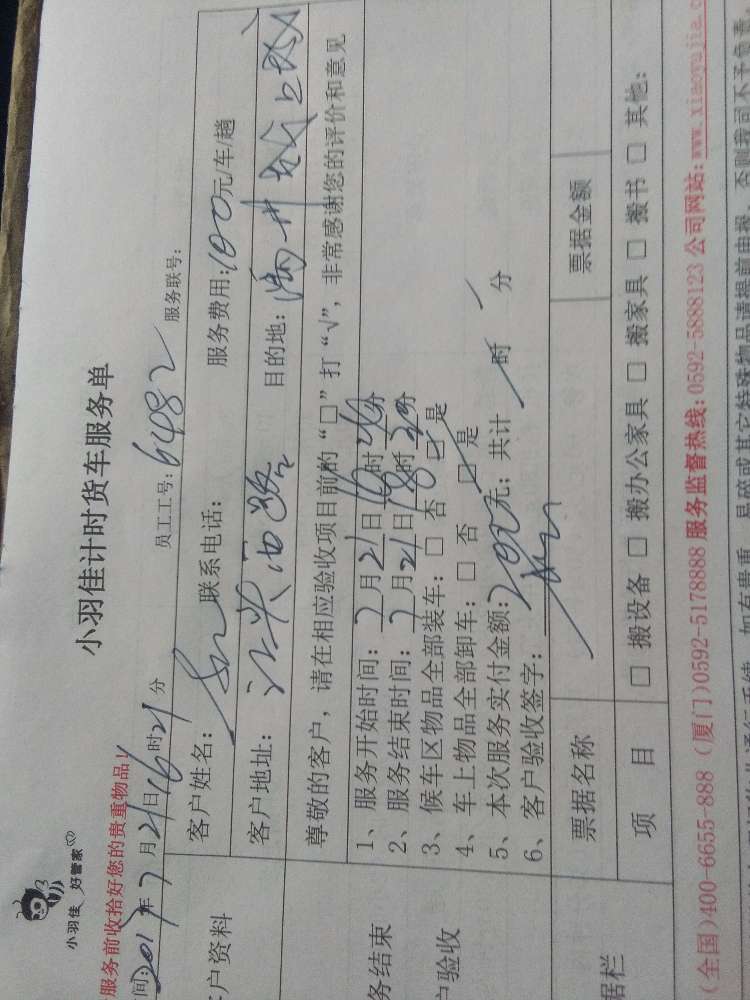 小羽佳 好管家
小羽佳计时货车服务单
服务前收拾好您的贵重物品!
间: 2017年7月21日16时21分 员工工号: 6482 服务联号:
户资料
客户姓名: 联系电话: 服务费用: 100元/车/趟
客户地址: 目的地:
务结束
户验收
尊敬的客户,请在相应验收项目前的“□”打“√”,非常感谢您的评价和意见
1、服务开始时间: 7月21日16时20分
2、服务结束时间: 7月21日18时20分
3、候车区物品全部装车: □ 否 ☑ 是
4、车上物品全部卸车: □ 否 ☑ 是
5、本次服务实付金额: 200元; 共计 时 分
6、客户验收签字:
据栏
票据名称 票据金额
项 目 □ 搬设备 □ 搬办公家具 □ 搬家具 □ 搬书 □ 其他:
(全国)400-6655-888 (厦门)0592-5178888 服务监督热线: 0592-5888123 公司网站: www.xiaoyujia.c
如有贵重、易碎或其它特殊物品请提前申报,否则我司不予负责